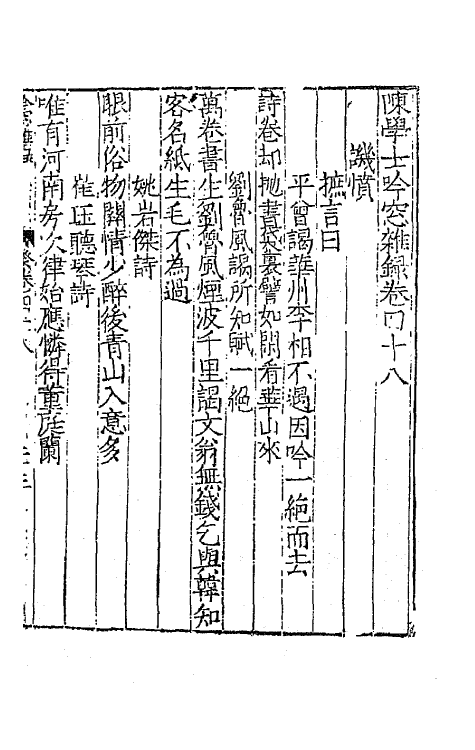 陳學士吟窓雜録卷四十八
譏憤
摭言曰
平曽謁華州李相不遇因吟一絶而去
詩卷却抛書袋裏譬如閑看華山來
劉魯風謁所知賦一絶
萬卷書生劉魯風煙波千里謁文翁無錢乞與韓知
客名紙生毛不為通
姚岩傑詩
眼前俗物關情少醉後青山入意多
崔珏聽琴詩
唯有河南房次律始應憐得董庭蘭